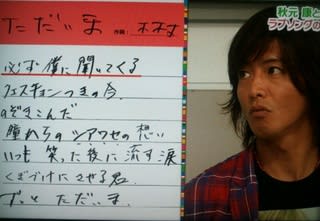 ただいま 作詞：木村
秋元 康と
ラブソングの
必ず僕に聞いてくる
クエスチョンつきの今
のぞきこんだ
瞳からのシアワセの想い
いつも笑った後に流す涙
くぎづけにさせる君
ずっと ただいま